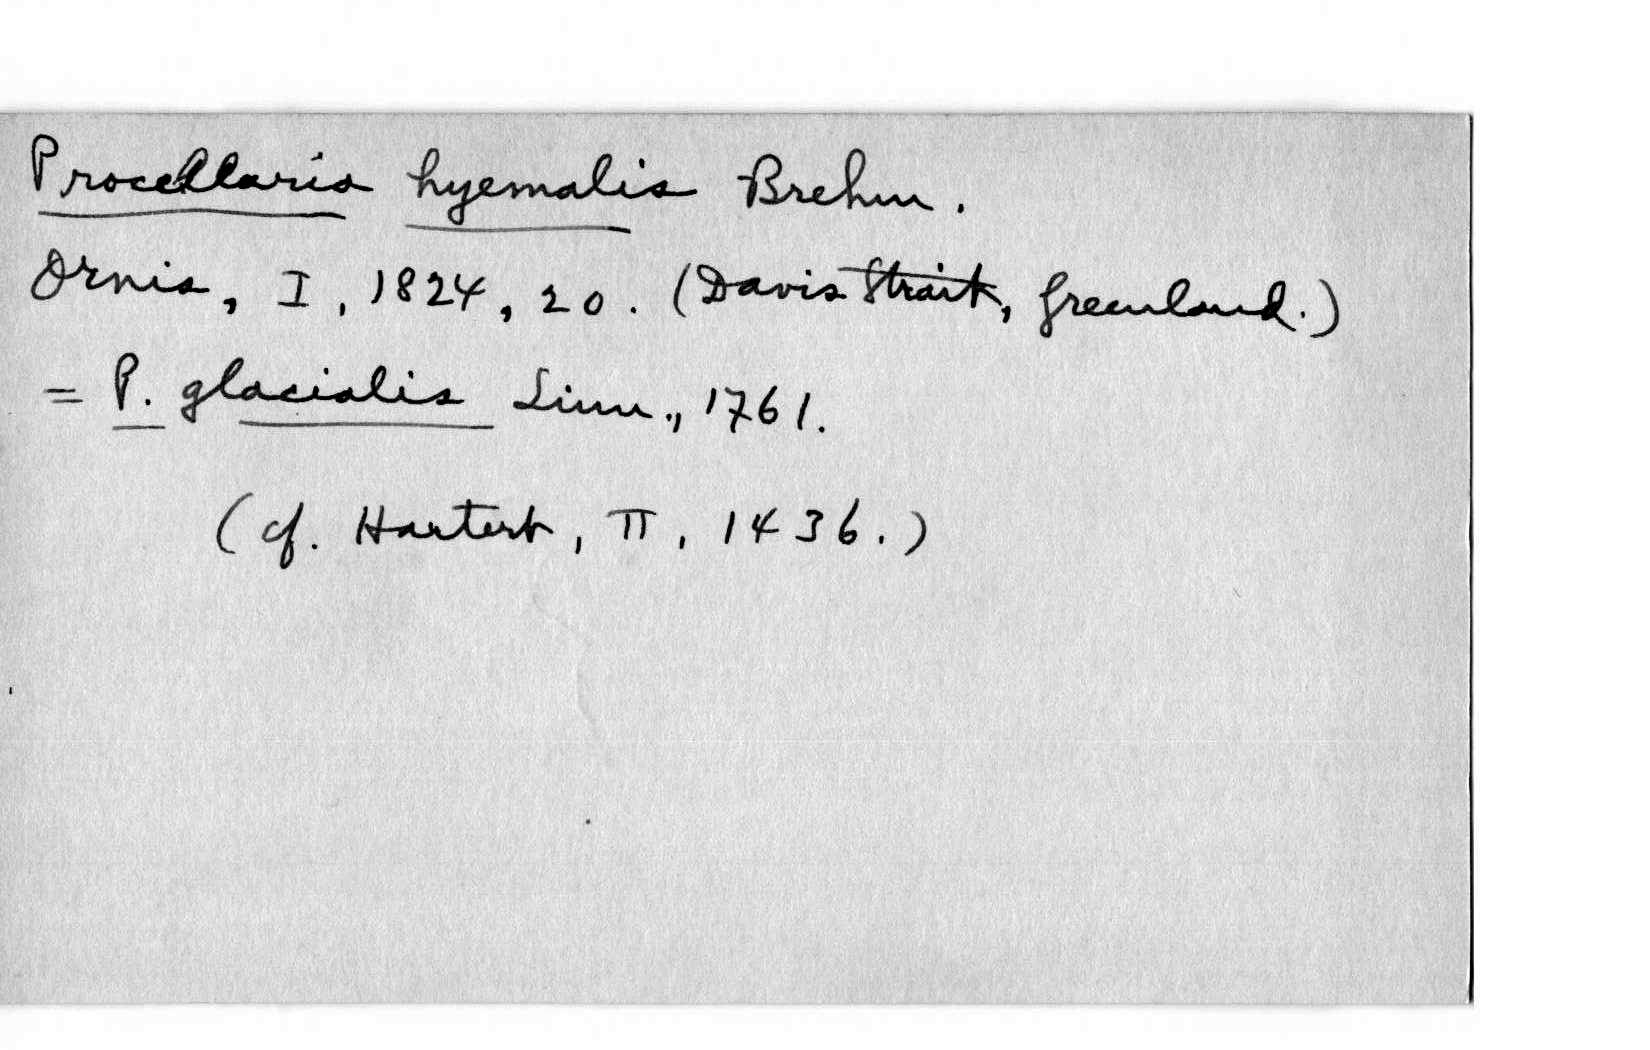 Procellaria hyemalis Brehm.
Ornis, I, 1824, 20. (Davis Strait, Greenland.)
= P. glacialis Linn., 1761.
(cf. Hartert, II, 1436.)